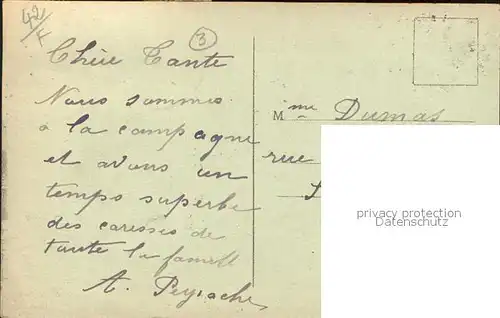 42
F
3
Chère Tante
Nous sommes
à la campagne
et avons un
temps superbe
des caresses de
toute la famille
A. Peyrache
Mme Dumas
rue
privacy protection
Datenschutz